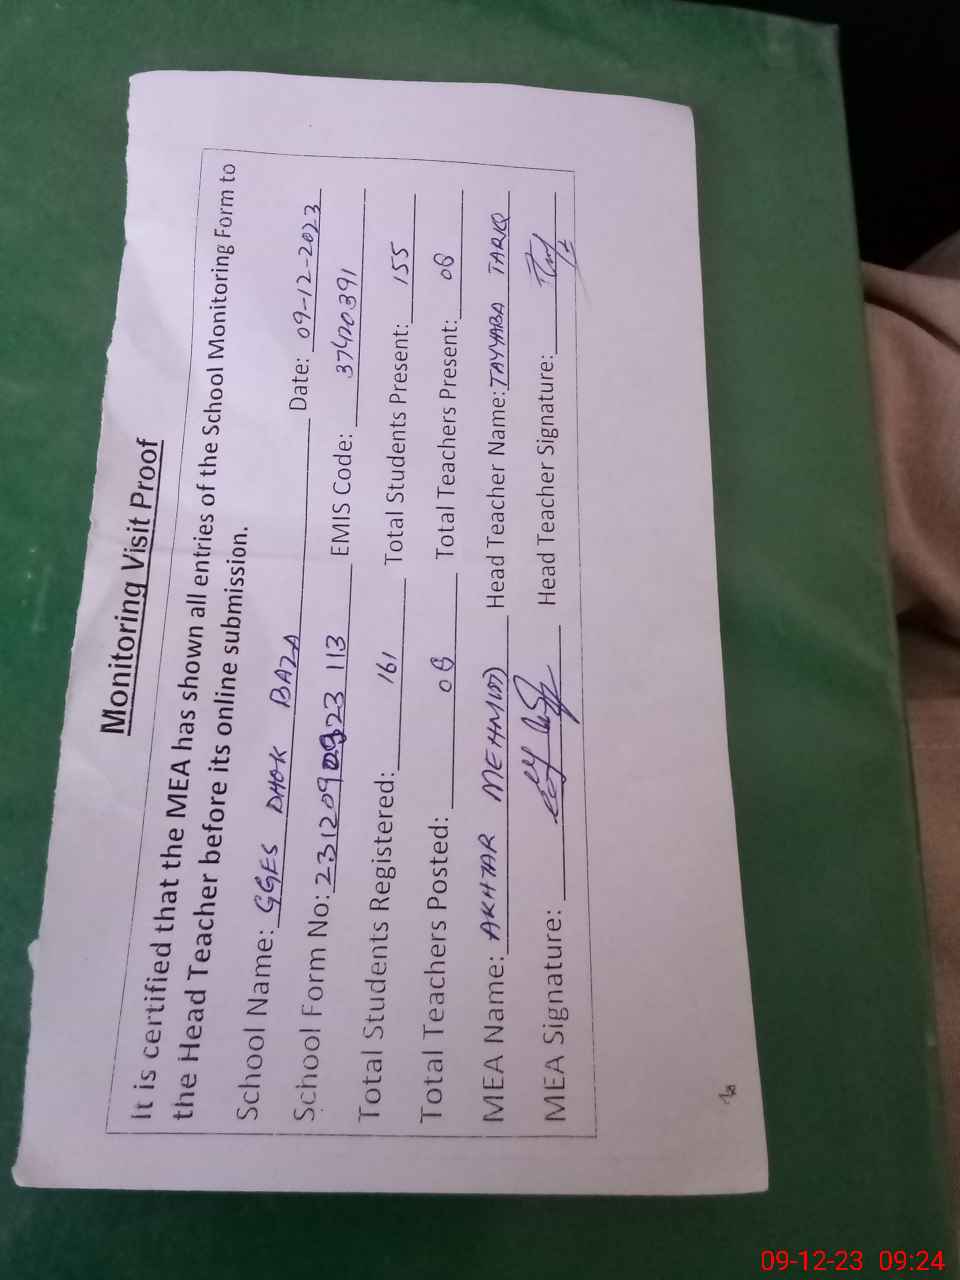 Monitoring Visit Proof
It is certified that the MEA has shown all entries of the School Monitoring Form to
the Head Teacher before its online submission.
School Name: GGES DHOK BAZA Date: 09-12-2023
School Form No: 231209 0923 113 EMIS Code: 37420391
Total Students Registered: 161 Total Students Present: 155
Total Teachers Posted: 08 Total Teachers Present: 08
MEA Name: AKHTAR Head Teacher Name: TAYYABA TARIQ
MEA Signature: Head Teacher Signature:
09-12-23 09:24